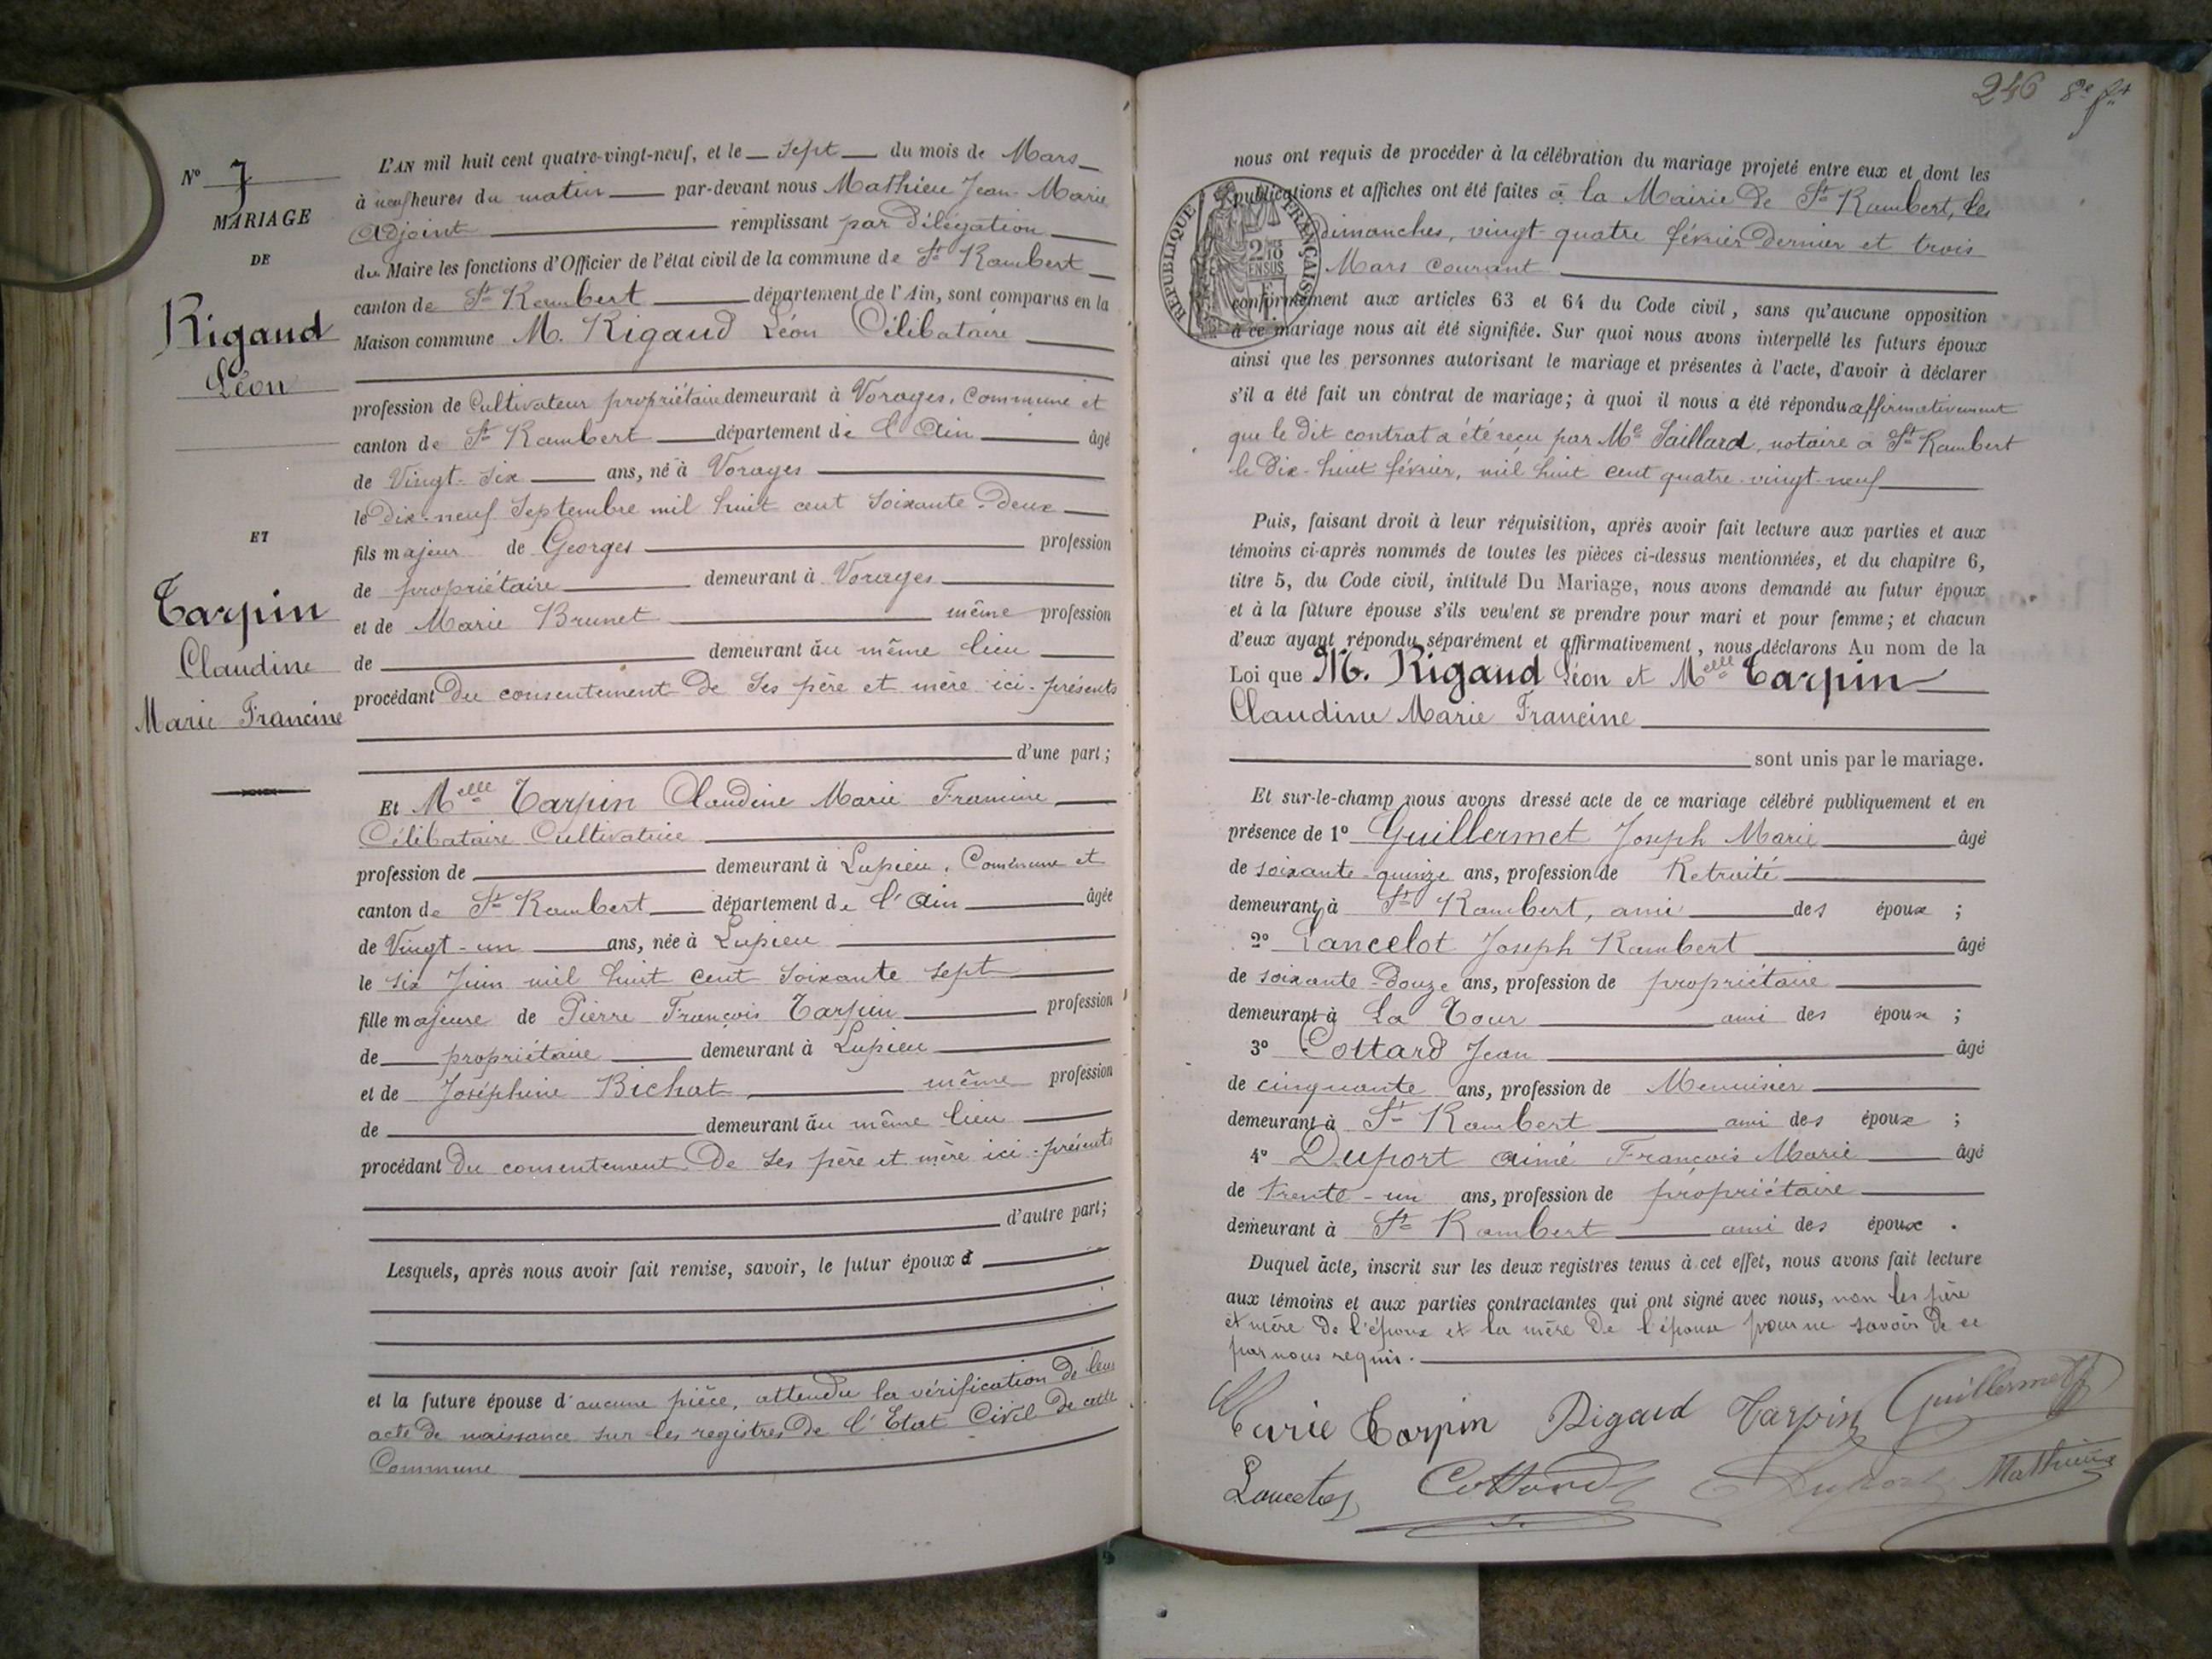 N° 7
MARIAGE
DE
Rigaud
Léon
ET
Tarpin
Claudine
Marie Francine
L'AN mil huit cent quatre-vingt-neuf, et le sept du mois de Mars
à neuf heures du matin par-devant nous Mathieu Jean-Marie
Adjoint remplissant par Délégation
du Maire les fonctions d'Officier de l'état civil de la commune de St Rambert
canton de St Rambert département de l'Ain, sont comparus en la
Maison commune M. Rigaud Léon Célibataire
profession de Cultivateur propriétaire demeurant à Vorages, Commune et
canton de St Rambert département de l'Ain âgé
de Vingt-six ans, né à Vorages
le Dix-neuf Septembre mil huit cent soixante-Deux
fils majeur de Georges profession
de propriétaire demeurant à Vorages
et de Marie Brunet même profession
de demeurant au même lieu
procédant Du consentement De ses père et mère ici-présents
d'une part;
Et Melle Tarpin Claudine Marie Francine
Célibataire Cultivatrice
profession de demeurant à Lupieu, Commune et
canton de St Rambert département de l'Ain âgée
de Vingt-un ans, née à Lupieu
le six Juin mil huit cent soixante sept
fille majeure de Pierre François Tarpin profession
de propriétaire demeurant à Lupieu
et de Joséphine Bichat même profession
de demeurant au même lieu
procédant Du consentement De ses père et mère ici-présents
d'autre part;
Lesquels, après nous avoir fait remise, savoir, le futur époux d
et la future épouse d'aucune pièce, attendu la vérification de leur
acte De naissance sur les registres De l'Etat Civil De cette
Commune
246 8e ft
nous ont requis de procéder à la célébration du mariage projeté entre eux et dont les
publications et affiches ont été faites à la Mairie De St Rambert, les
dimanches, vingt-quatre février Dernier et trois
Mars courant
RÉPUBLIQUE FRANÇAISE
conformément aux articles 63 et 64 du Code civil, sans qu'aucune opposition
à ce mariage nous ait été signifiée. Sur quoi nous avons interpellé les futurs époux
ainsi que les personnes autorisant le mariage et présentes à l'acte, d'avoir à déclarer
s'il a été fait un contrat de mariage; à quoi il nous a été répondu affirmativement
que le Dit contrat a été reçu par Me Saillard, notaire à St Rambert
le Dix-huit février, mil huit cent quatre-vingt-neuf
Puis, faisant droit à leur réquisition, après avoir fait lecture aux parties et aux
témoins ci-après nommés de toutes les pièces ci-dessus mentionnées, et du chapitre 6,
titre 5, du Code civil, intitulé Du Mariage, nous avons demandé au futur époux
et à la future épouse s'ils veulent se prendre pour mari et pour femme; et chacun
d'eux ayant répondu séparément et affirmativement, nous déclarons Au nom de la
Loi que M. Rigaud Léon et Melle Tarpin
Claudine Marie Francine
sont unis par le mariage.
Et sur-le-champ nous avons dressé acte de ce mariage célébré publiquement et en
présence de 1° Guillermet Joseph Marie âgé
de soixante-quinze ans, profession de Retraité
demeurant à St Rambert, ami des époux ;
2° Lancelot Joseph Rambert âgé
de soixante-Douze ans, profession de propriétaire
demeurant à La Tour ami des époux ;
3° Cottard Jean âgé
de cinquante ans, profession de Menuisier
demeurant à St Rambert ami des époux ;
4° Duport Aimé François Marie âgé
de trente-un ans, profession de propriétaire
demeurant à St Rambert ami des époux .
Duquel acte, inscrit sur les deux registres tenus à cet effet, nous avons fait lecture
aux témoins et aux parties contractantes qui ont signé avec nous, non les père
et mère De l'époux et la mère De l'épouse pour ne savoir De ce
par nous requis.
Marie Tarpin Rigaud Tarpin Guillermet
Lancelot Cottard Duport Mathieu